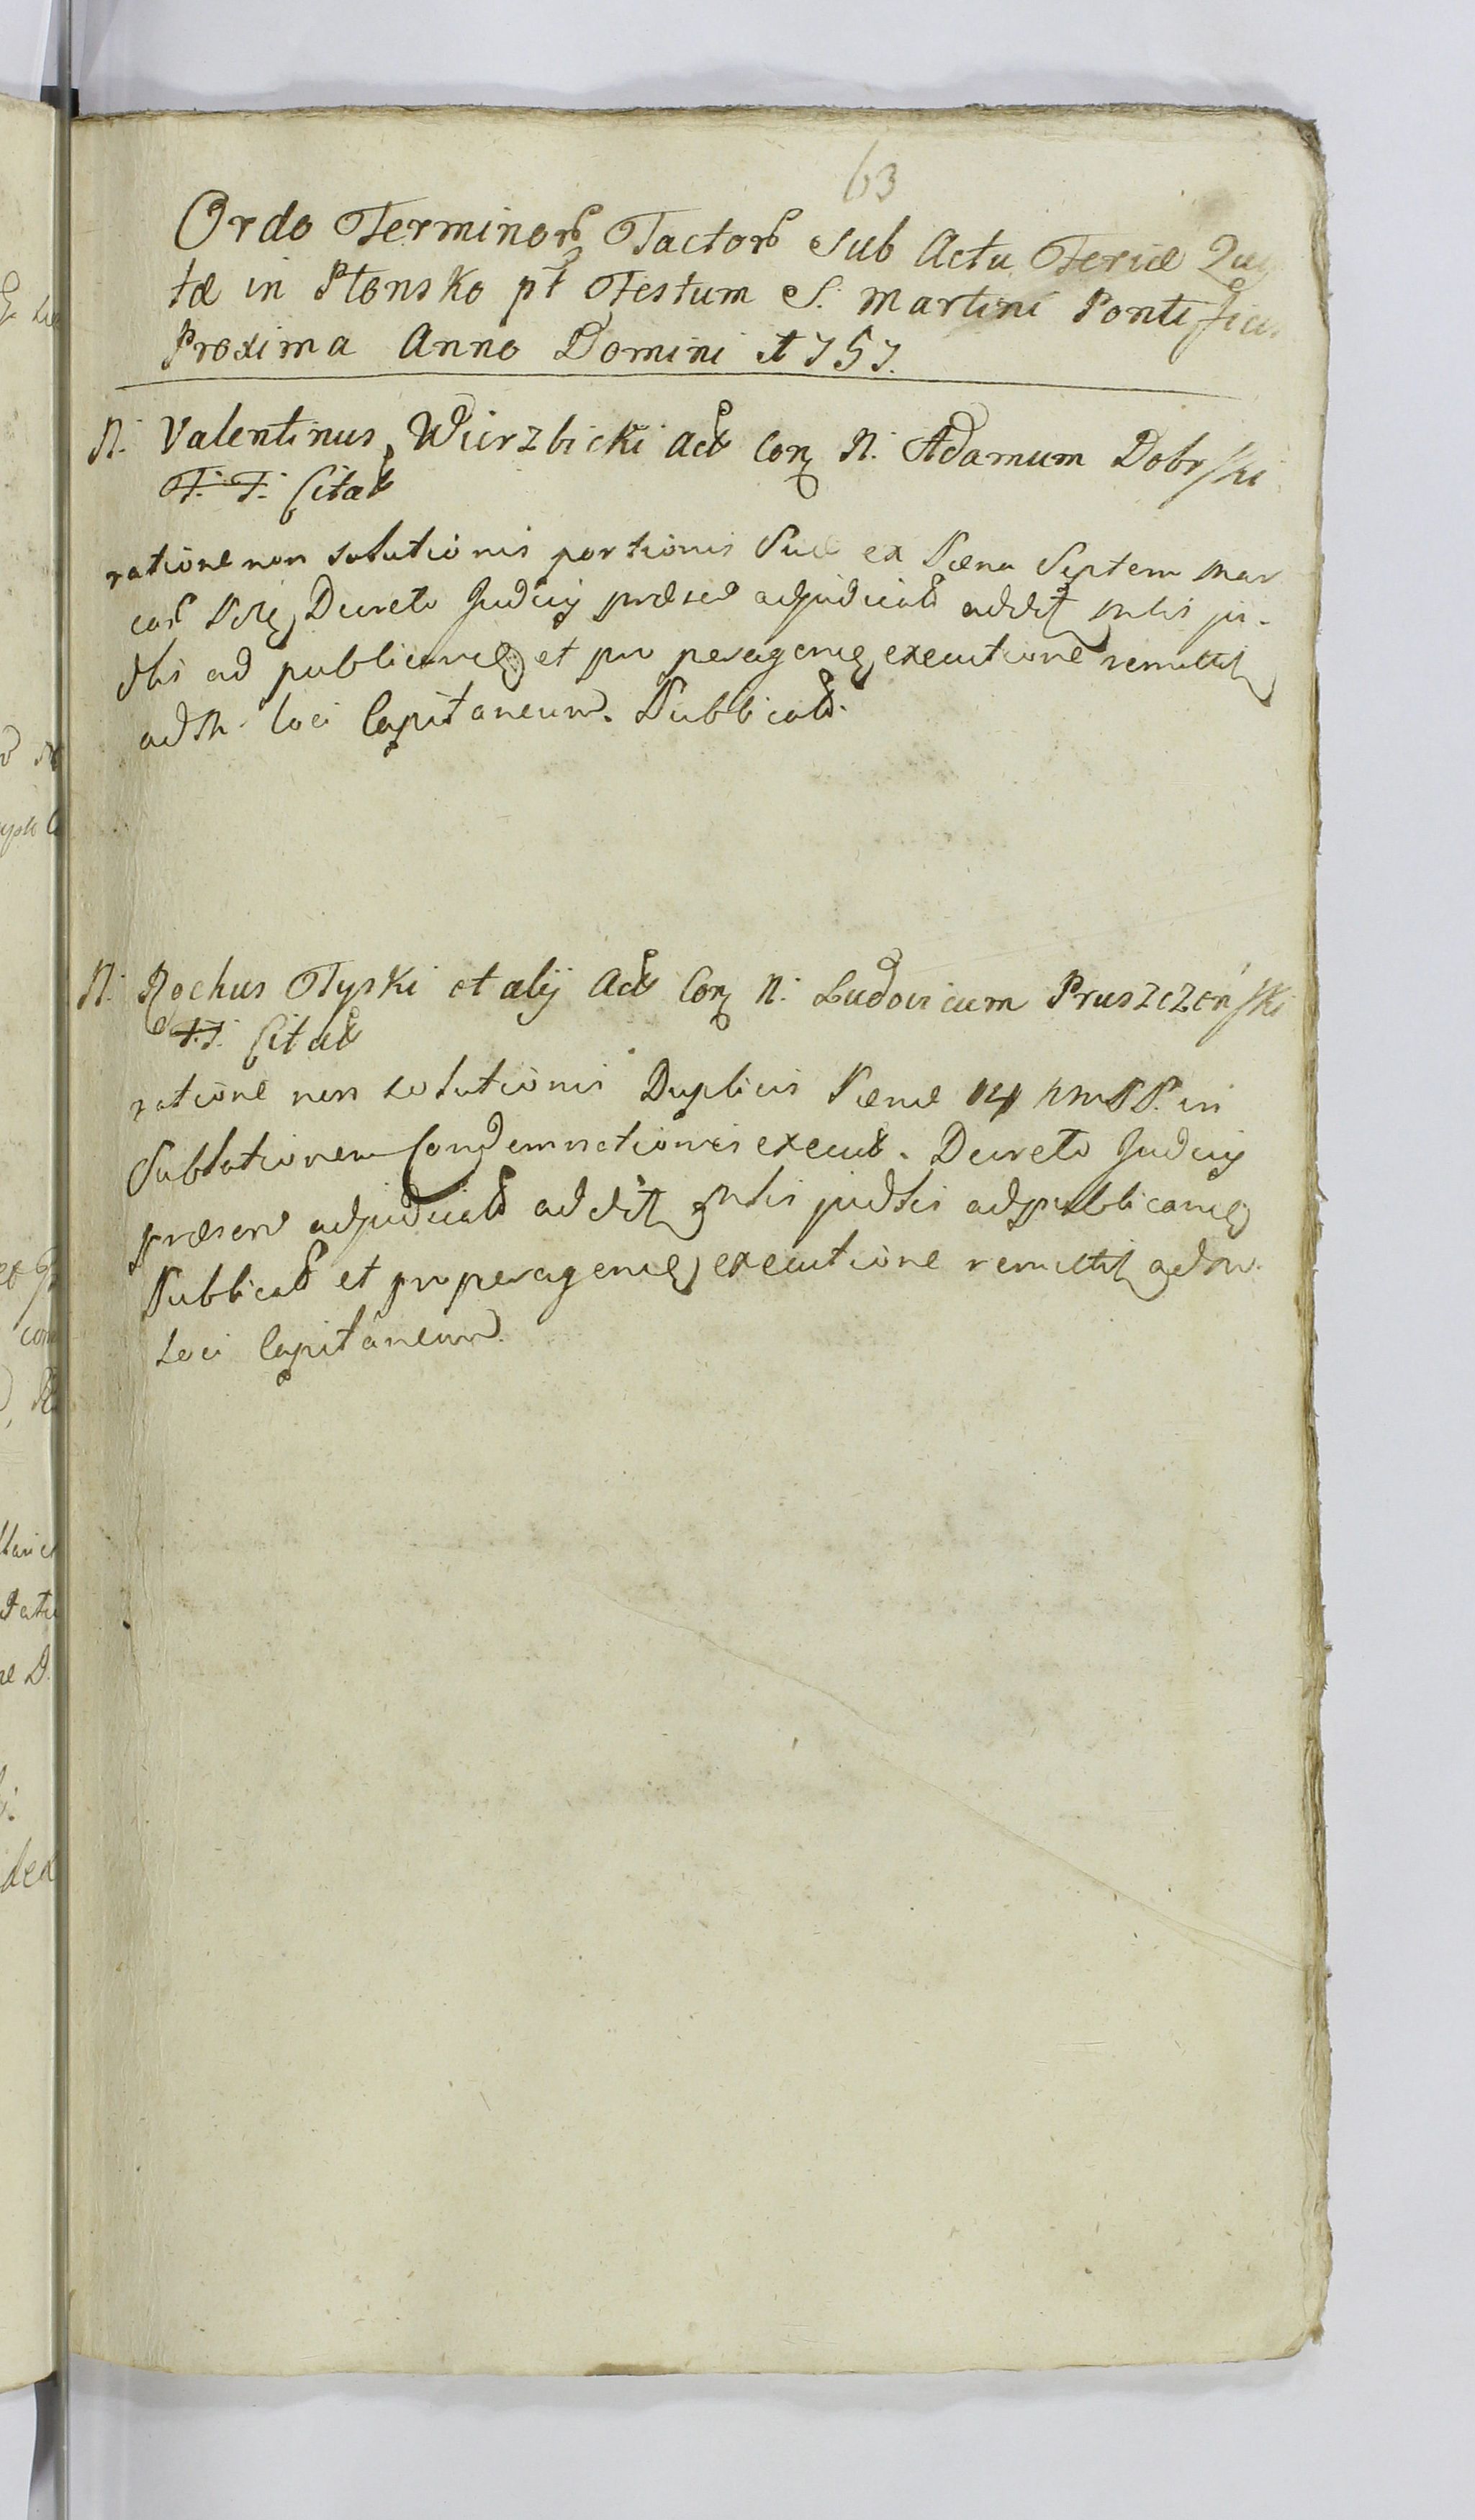 63
Ordo Terminor Factor Sub Actu Feriæ Qua
tæ in Płonsko pt Festum S. Martini Pontificis
Proxima Anno Domini 1757.
N. Valentinus Wierzbicki Act Con N. Adamum Dobrski
F. F. Citat
ratione non solutionis portionis suæ ex Pæna Septem mar
car Decreto Judicij præsen adjudicat addit mlis ju-
dlis ad publicand et pro peragend executione remittit
ad M. loci Capitaneum. Publicat.
N. Rochus Tyski et alij Act Con N. Ludovicum Pruszczeński
F. F. Citat
ratione non solutionis Duplicis Pænæ 14 in
Sublationem Condemnationis execut. Decreto Judicij
præsen adjudicat addit mlis judlis ad publicand
Publicat et pro peragend executione remittit ad M.
Loci Capitaneum.